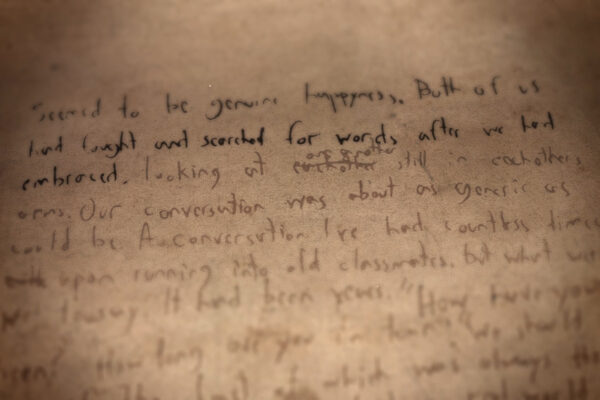 "seemed to be genuine happyness. Both of us
had laught and searched for words after we had
embraced. looking at one another still in eachothers
arms. Our conversation was about as generic as
could be. A conversation I've had countless times
upon running into old classmates. but what we
It had been years. "How have you
been? How long are you in town?" we should
The last of which was always the